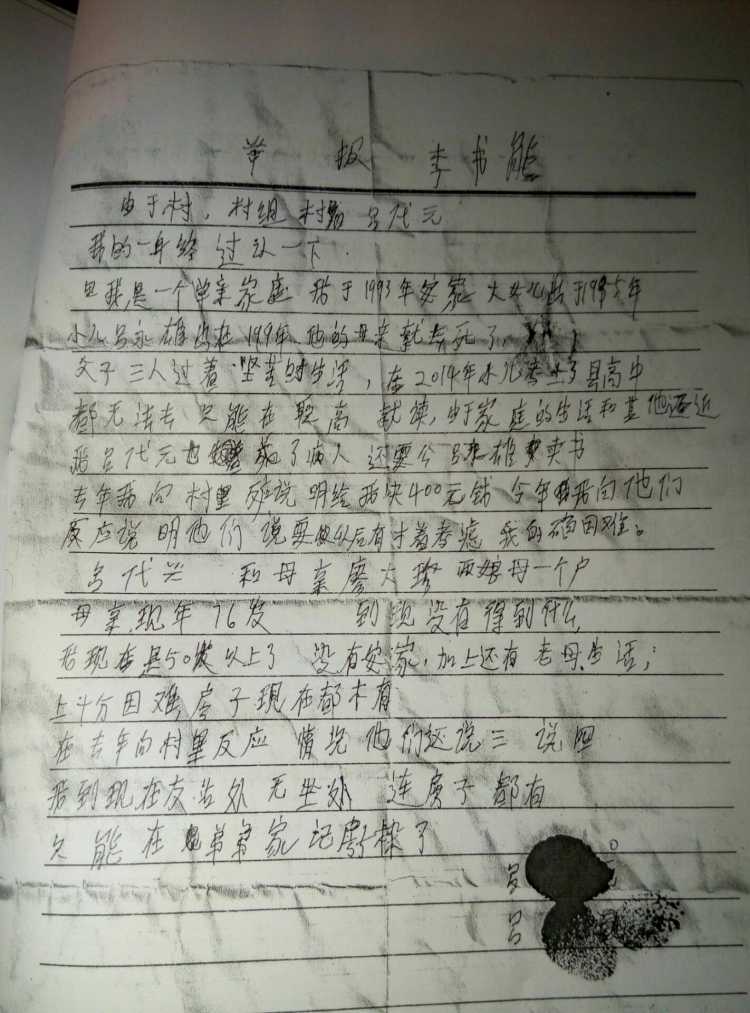 举报 李书能
由于村，村组 吕代元
我的一年经过认一下．
我是一个单亲家庭 我于1993年安家 大女儿出于1995年
小儿吕永雄出在199年、他的母亲就去死了，
父子三人过着坚苦的生活，在2014年小儿考上了县高中
都无法去 只能在职高 就读，由于家庭的生活和其他
我吕代元也 了病人 还要令吕永雄卖书
去年我向村里反应说明给我决400元钱 今年我向他们
反应说明他们说要以后有才着考虑 我的确困难。
吕代兴 和母亲廖大珍 两娘母一个户
母亲现年76岁 到现没有得到什么
我现在是50岁以上了 没有安家，加上还有老母生活；
上十分困难房子现在都木有
在去年向村里反应 情况他们还说三说四
我到现在友站处无坐处 连房子都有
欠能在 弟弟家
吕
吕